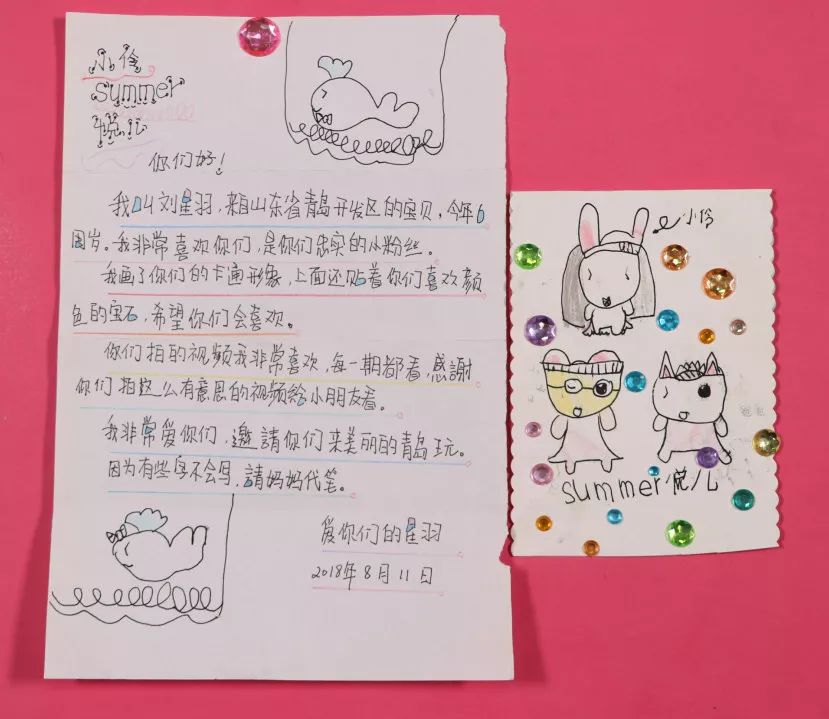 小伶
summer
悦儿
你们好!
我叫刘星羽,来自山东省青岛开发区的宝贝,今年6
周岁。我非常喜欢你们,是你们忠实的小粉丝。
我画了你们的卡通形象,上面还贴着你们喜欢颜
色的宝石,希望你们会喜欢。
你们拍的视频我非常喜欢,每一期都看,感謝
你们拍这么有意思的视频给小朋友看。
我非常爱你们,邀請你们来美丽的青岛玩。
因为有些字不会写,請妈妈代笔。
爱你们的星羽
2018年8月11日
小伶
summer 悦儿